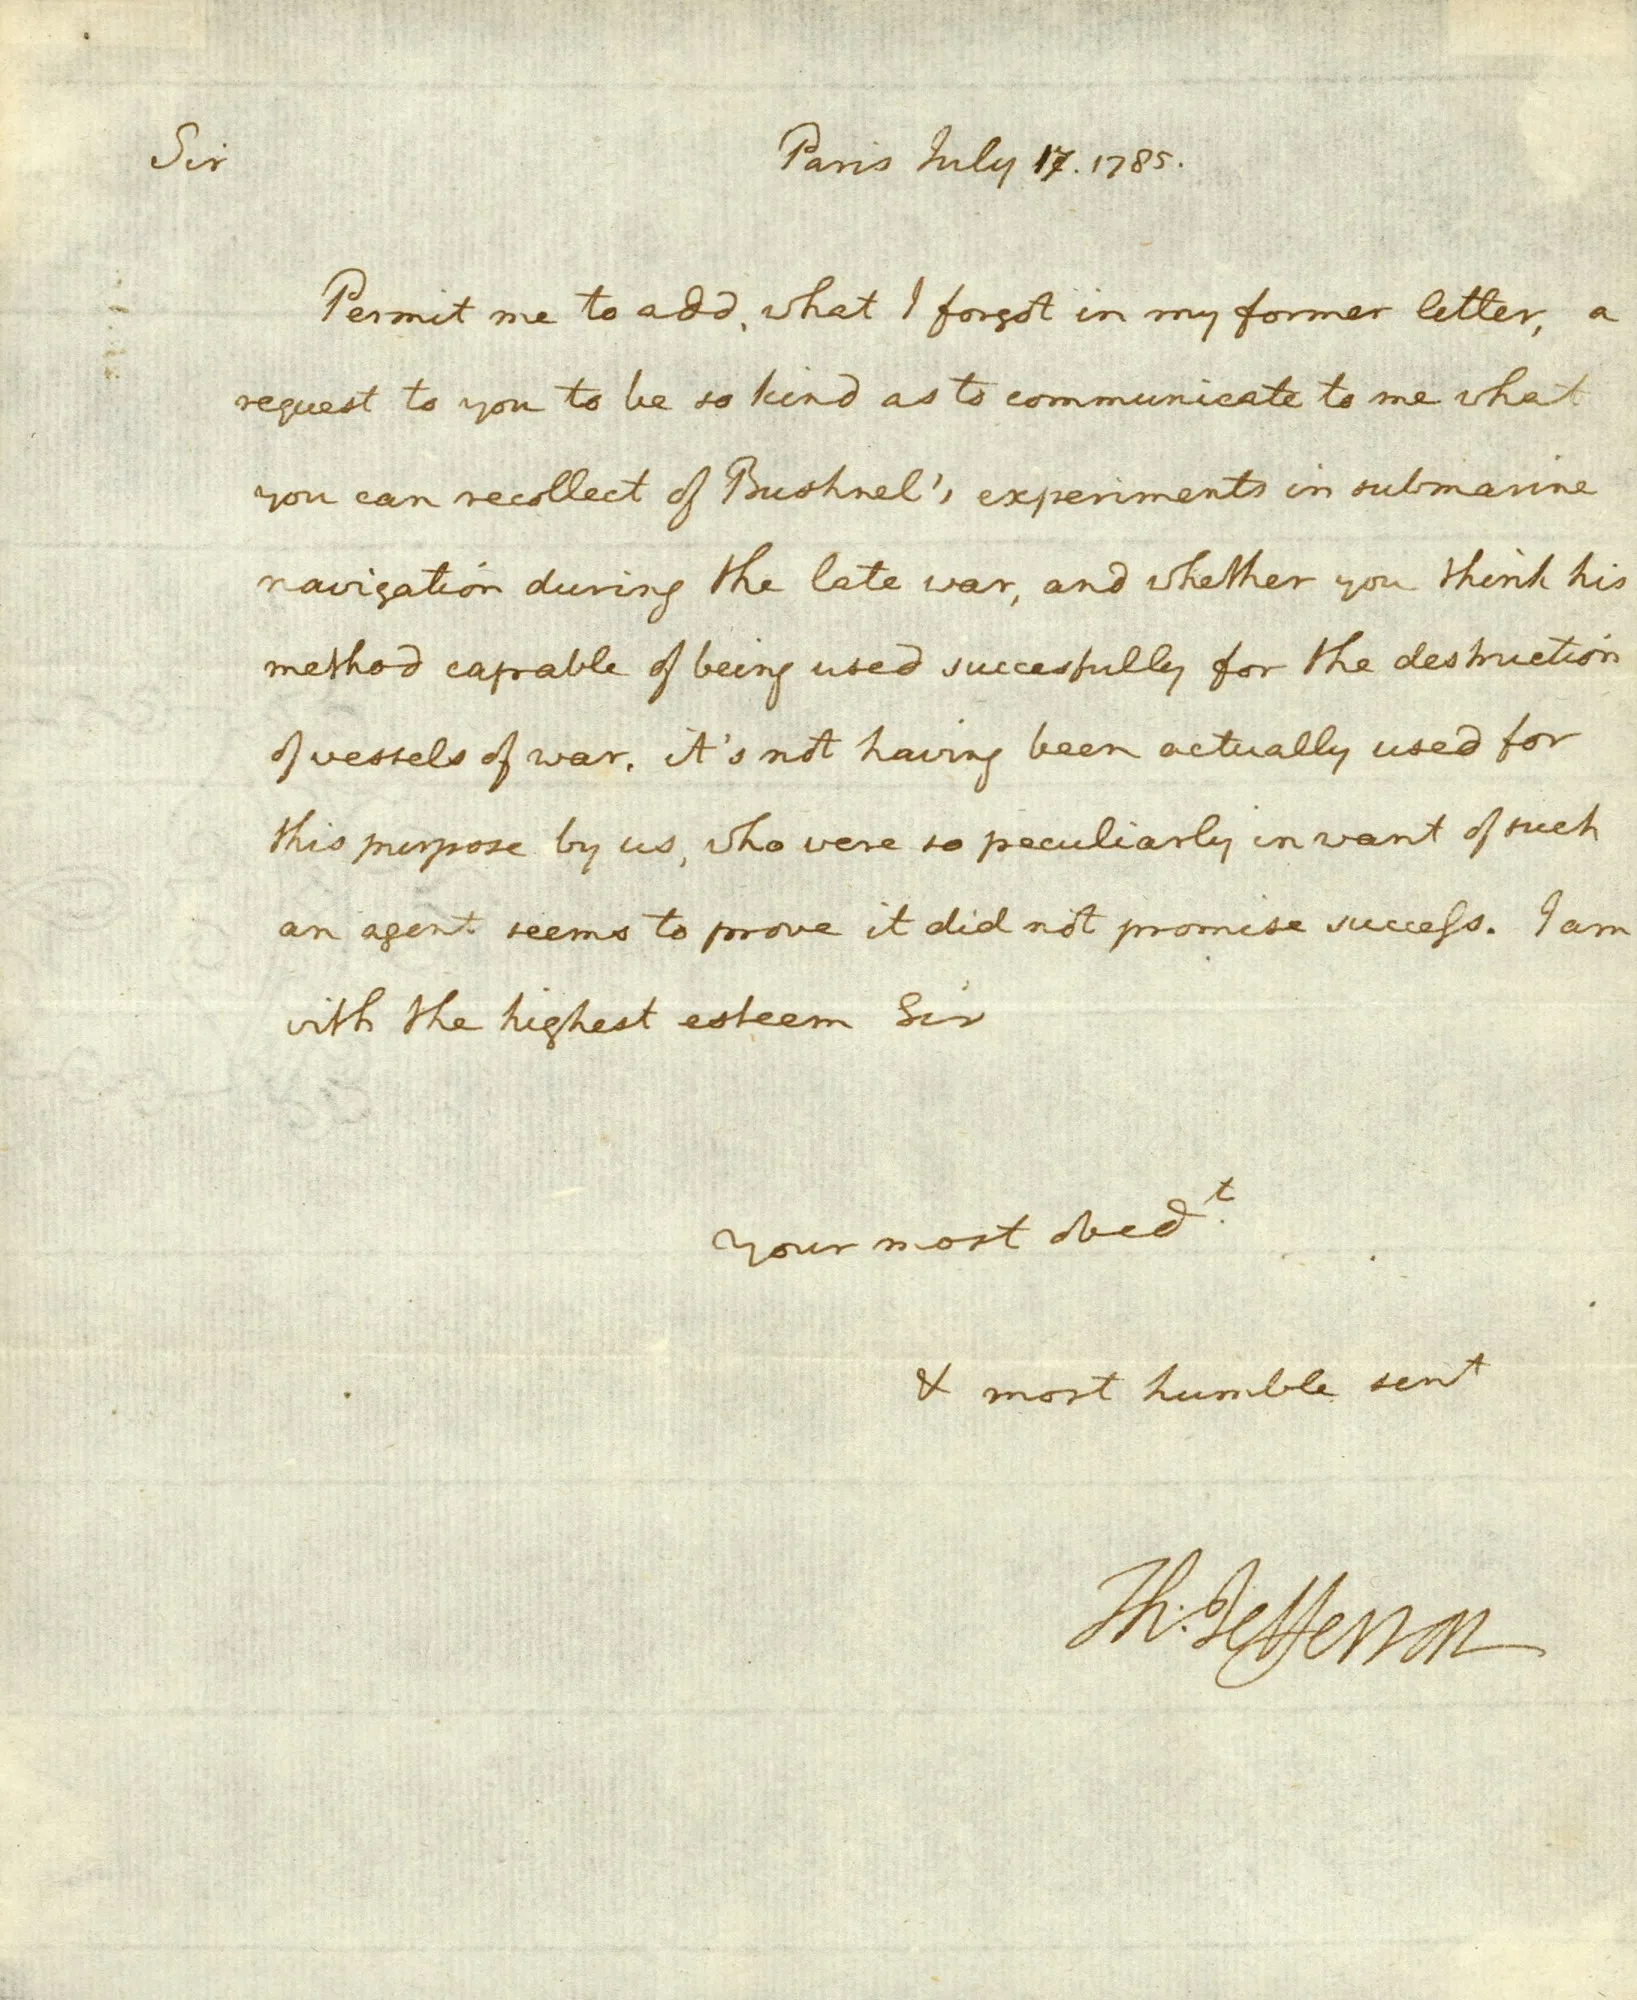 Sir Paris July 17. 1785.
Permit me to add, what I forgot in my former letter, a
request to you to be so kind as to communicate to me what
you can recollect of Bushnel's experiments in submarine
navigation during the late war, and whether you think his
method capable of being used succesfully for the destruction
of vessels of war. it's not having been actually used for
this purpose by us, who were so peculiarly in want of such
an agent seems to prove it did not promise success. I am
with the highest esteem Sir
Your most obedt.
& most humble servt
Th: Jefferson